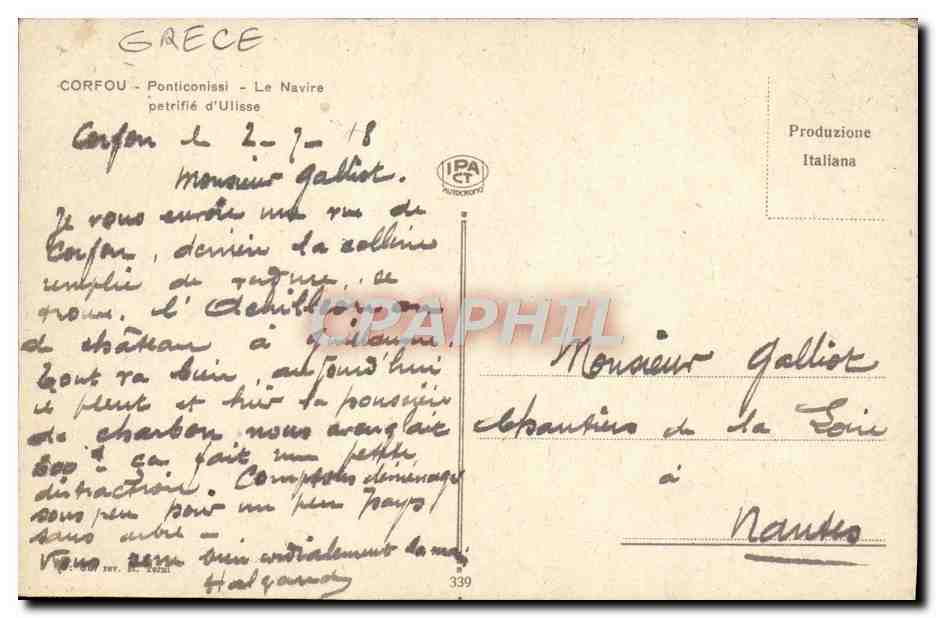 GRECE
CORFOU - Ponticonissi - Le Navire
petrifié d'Ulisse
Corfou le 2-7-18
Monsieur Galliot.
Je vous envoie une vue de
Corfou, derrière la colline
remplie de verdure, se
trouve, l'Achilleion
de château à Guillaume.
Tout va bien, aujourd'hui
il pleut et hier la poussière
de charbon nous aveuglait
ça fait une petite
distraction. Comptons déménager
sous peu pour un peu pays
sans arbre -
Vous serre bien cordialement la main
Halgand
rev. Terni
IPA
CT
AUTOCROMO
339
Produzione
Italiana
Monsieur Galliot
Chantiers de la Loire
à
Nantes
CPAPHIL